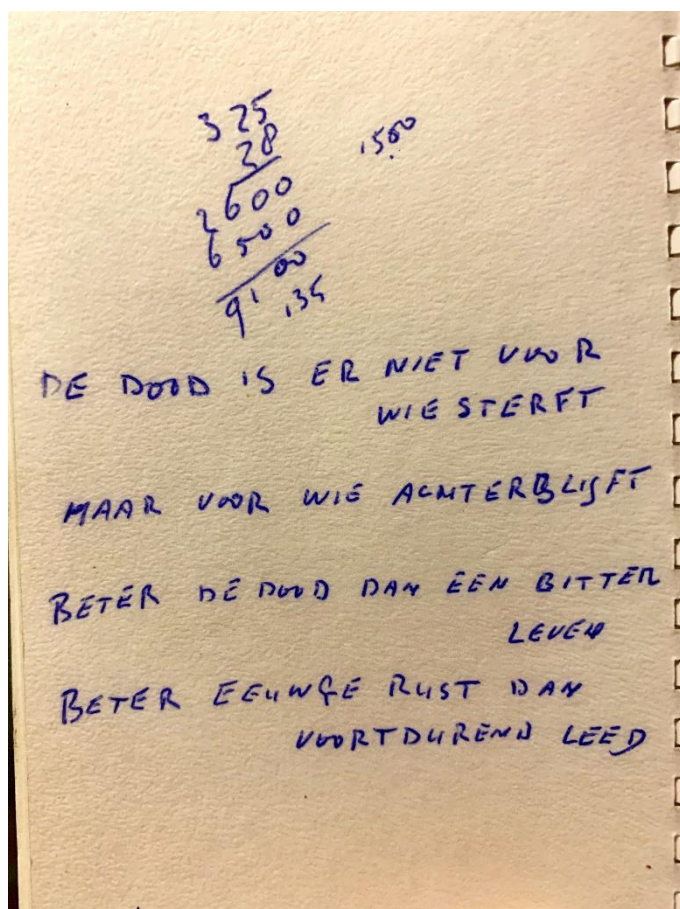 325
28
2600
6500
9100
,35
,1500
DE DOOD IS ER NIET VOOR
WIE STERFT
MAAR VOOR WIE ACHTERBLIJFT
BETER DE DOOD DAN EEN BITTER
LEVEN
BETER EEUWGE RUST DAN
VOORTDUREND LEED